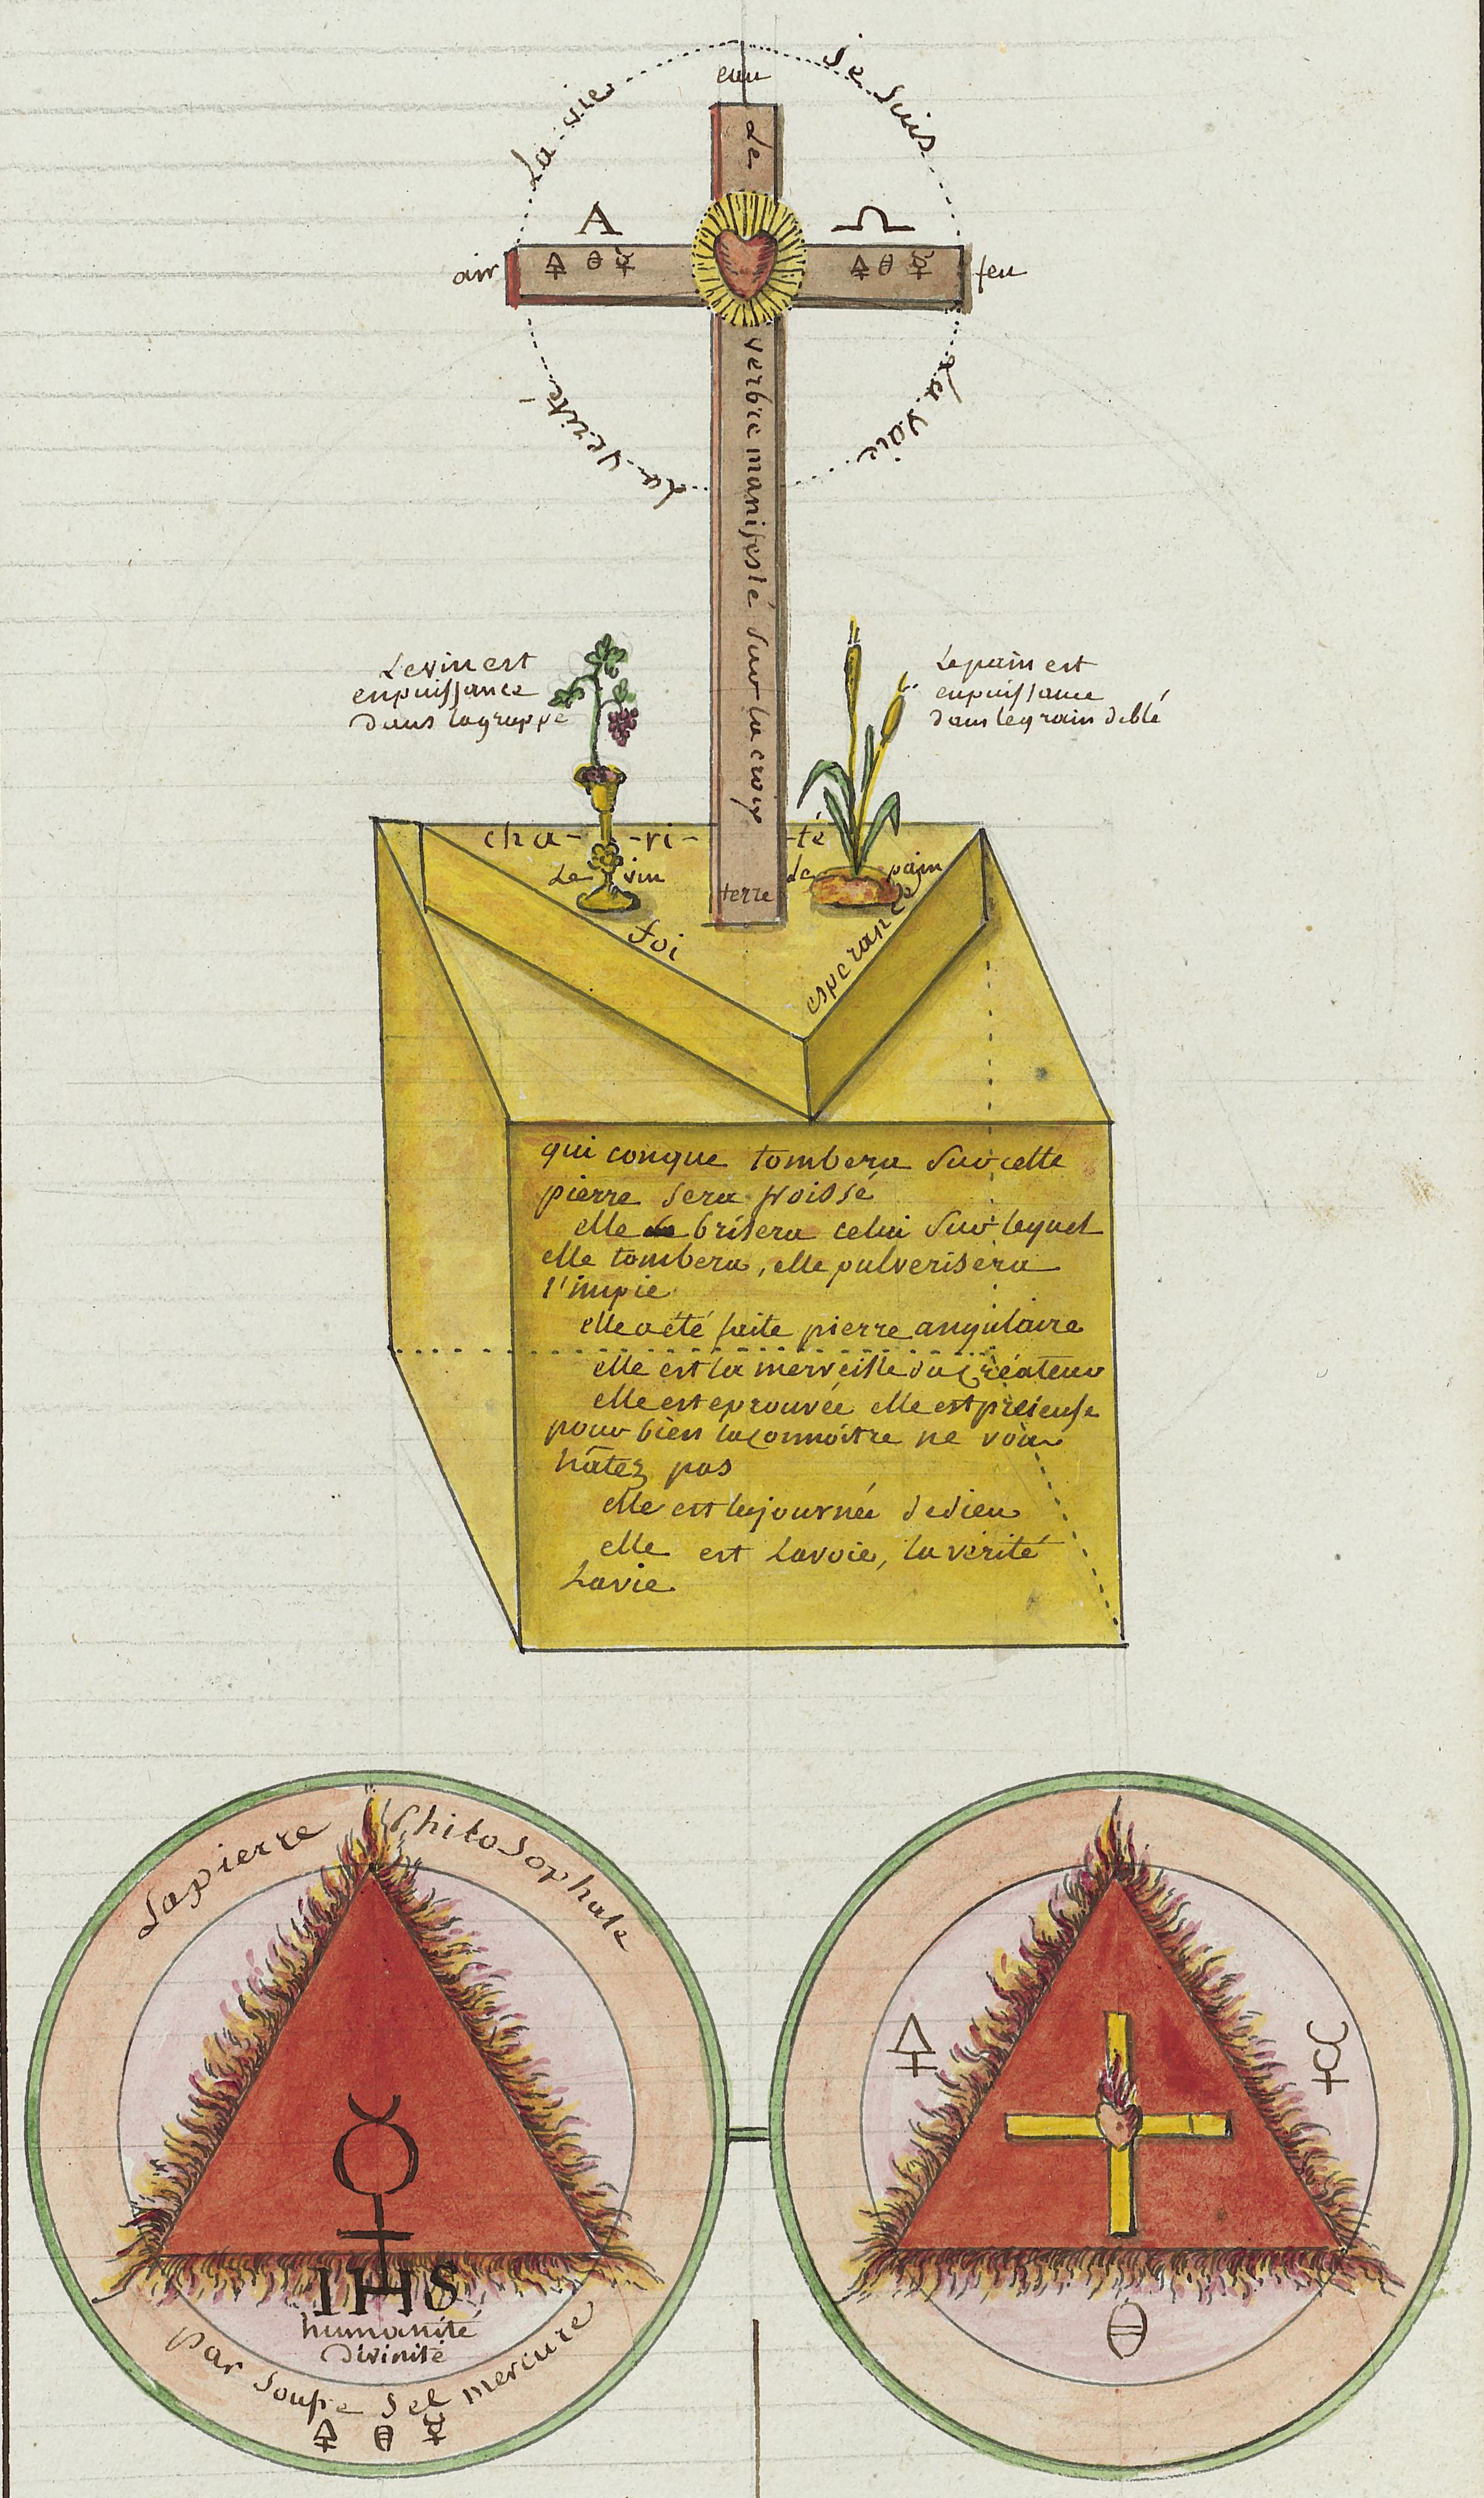 eau
Je Suis
La vie
Le
A Ω
air
🜍 🜔 ☿
🜍 🜔 ☿
feu
La Voie
La Verité
verbe manifesté Sur la croix
Le vin est
en puissance
dans la grappe
Le pain est
en puissance
dans le grain de blé
cha-ri-té
Le vin
Le pain
terre
foi
esperance
qui conque tombera Sur cette
pierre Sera froissé
elle brisera celui Sur lequel
elle tombera, elle pulverisera
l'impie
elle a été faite pierre angulaire
elle est la merveille du Créateur
elle est eprouvée elle est précieuse
pour bien la Connoitre ne vous
hâtez pas
elle est la journée de dieu
elle est La voie, la vérité
La vie
La pierre PhiloSophale
☿
IHS
humanité
divinité
Par Soufre Sel mercure
🜍 🜔 ☿
🜍 ☿
🜔